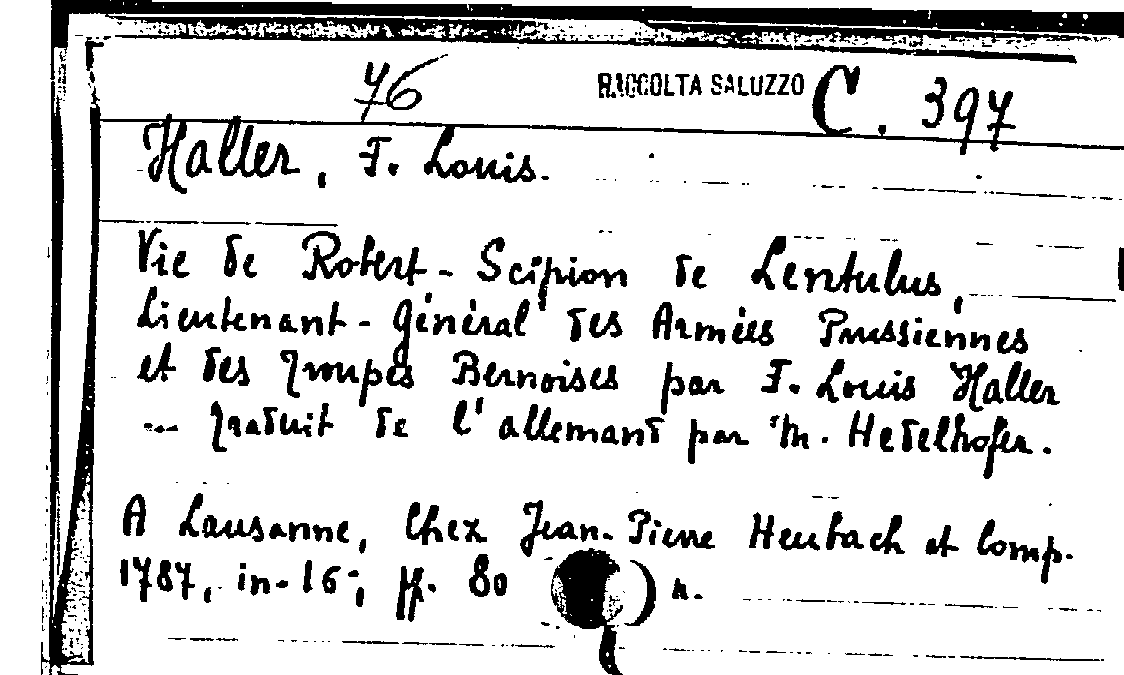 76 RACCOLTA SALUZZO C. 397
Haller, F. Louis.
Vie de Robert-Scipion de Lentulus,
Lieutenant-Général des Armées Prussiennes
et des Troupes Bernoises par F. Louis Haller
... Traduit de l'allemand par M. Hedelhofer.
A Lausanne, Chez Jean-Pierre Heubach et Comp.
1787, in-16°; pp. 80